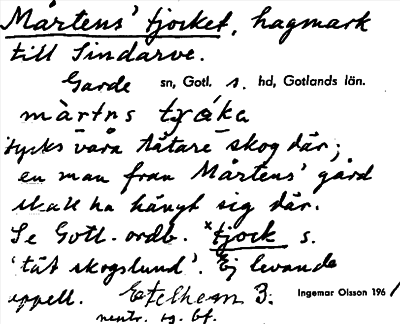 Mårtens' tjocket, hagmark
till Sindarve.
Garde sn, Gotl. s. hd, Gotlands län.
màrtns
tycks vara tätare skog där;
en man från Mårtens' gård
skall ha hängt sig där.
Se Gotl. ordb. *tjock s.
'tät skogslund'. Ej levande
appell. Etelhem 3. Ingemar Olsson 1961
neutr. sg. bf.